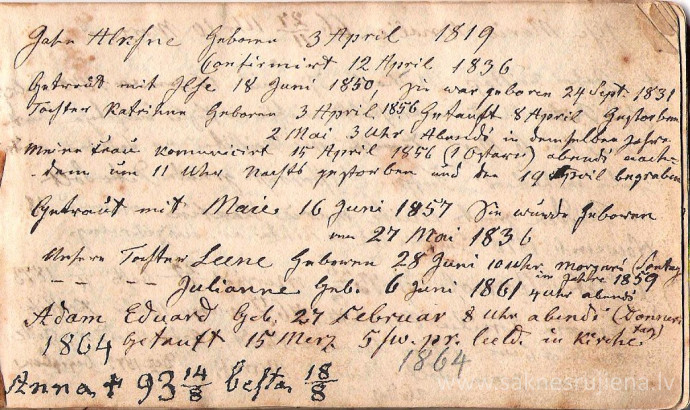 Jahn Alksne Geboren 3 April 1819
Confirmirt 12 April 1836
Getraut mit Ilse 18 Juni 1850, Sie war geboren 24 Sept. 1831
Tochter Katrihne Geboren 3 April 1856 Getauft 8 April Gestorben
2 Mai 3 Uhr Abends in demselben Jahre
Meine Frau komunicirt 15 April 1856 (1 Ostern) abends nach-
dem um 11 Uhr Nachts gestorben und den 19 April begraben
Getraut mit Maie 16 Juni 1857 Sie wurde Geboren
27 Mai 1836
Unsere Tochter Leene Geboren 28 Juni 10 Uhr Morgens (Sontag
im Jahre 1859
— — — Julianne Geb. 6 Juni 1861 4 uhr abends
Adam Eduard Geb. 27 Februar 8 uhr abends (Donners
tag)
1864 Getauft 15 Merz in Kirche
1864
Anna + 93 14/8 18/8
www.saknesrujiena.lv